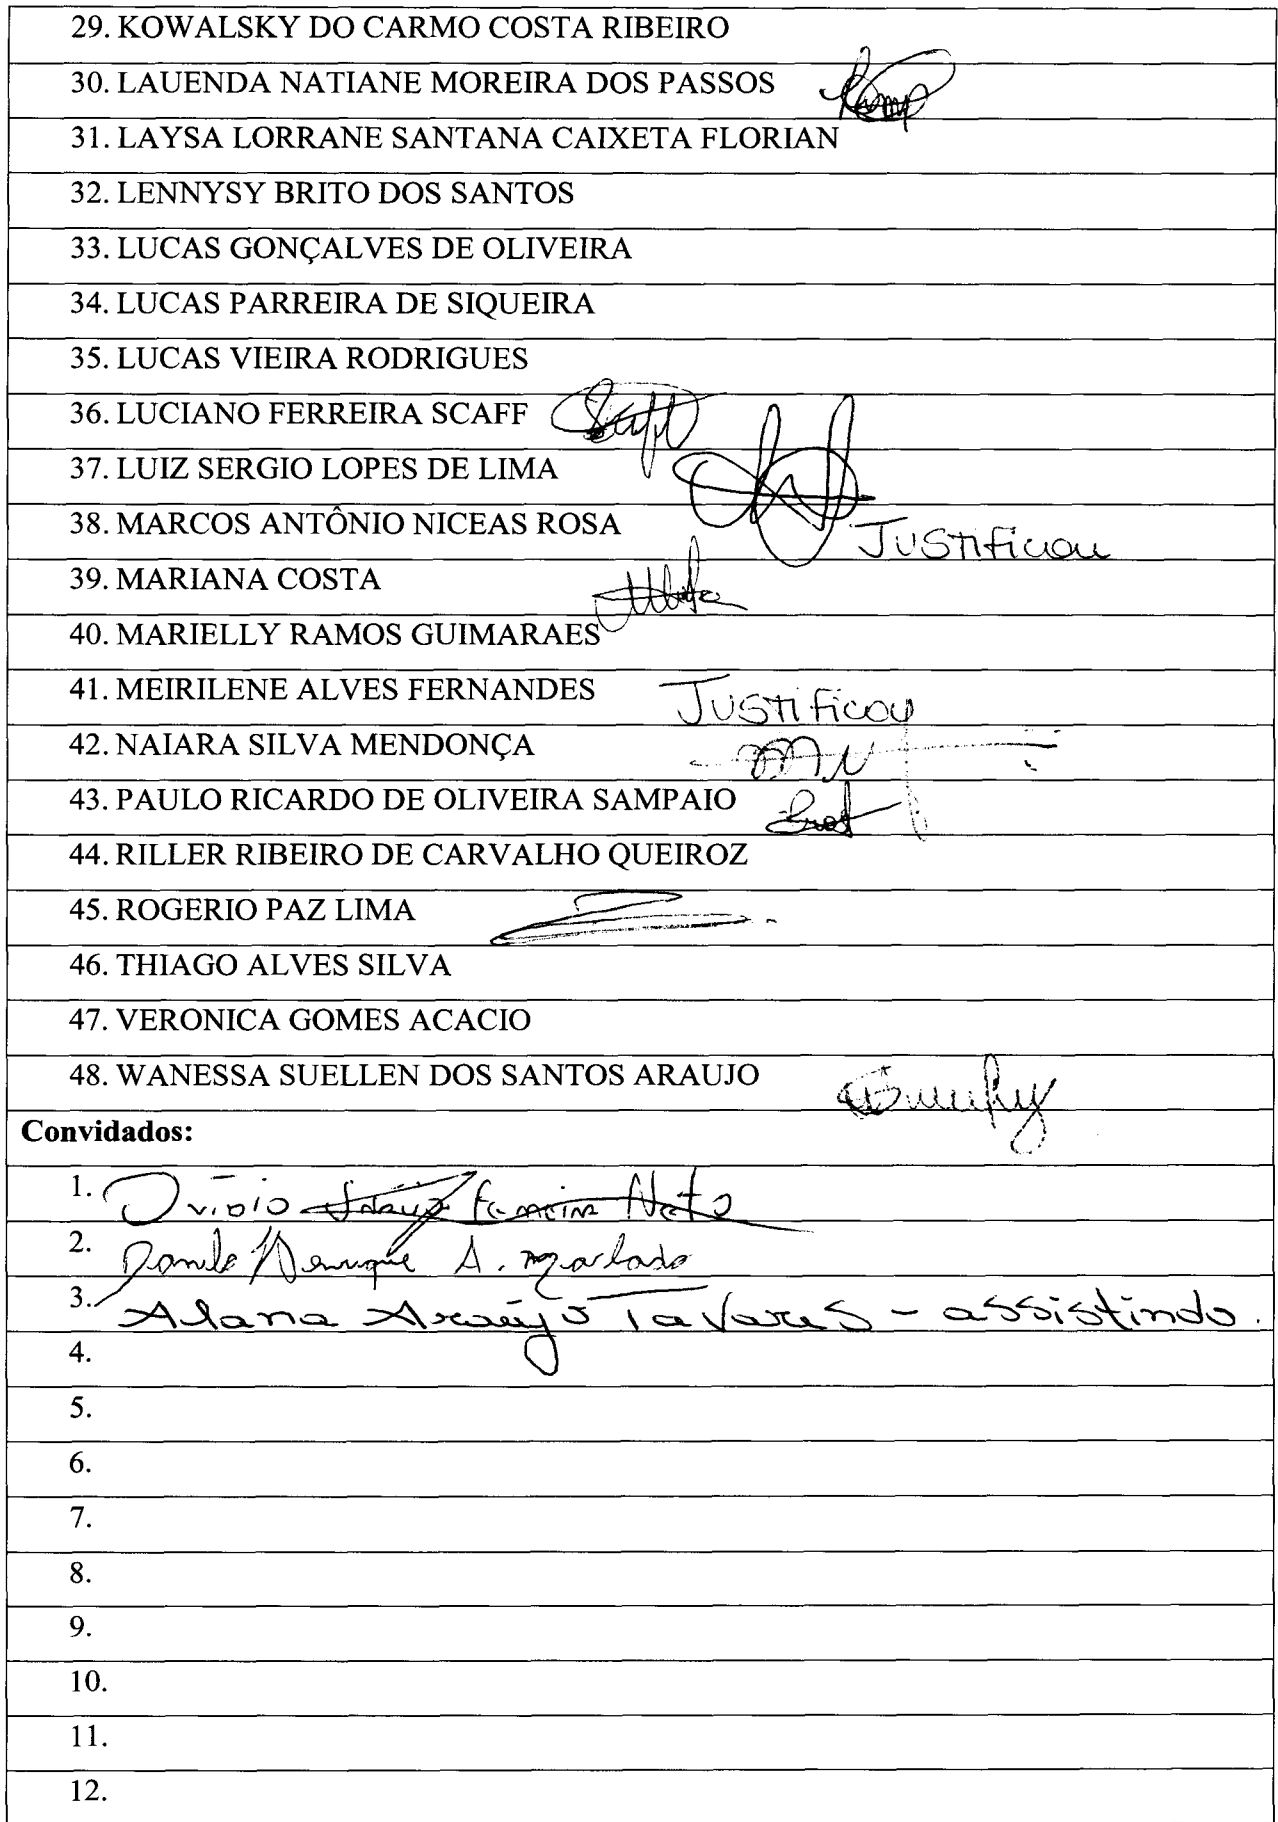 29. KOWALSKY DO CARMO COSTA RIBEIRO
30. LAUENDA NATIANE MOREIRA DOS PASSOS
31. LAYSA LORRANE SANTANA CAIXETA FLORIAN
32. LENNYSY BRITO DOS SANTOS
33. LUCAS GONÇALVES DE OLIVEIRA
34. LUCAS PARREIRA DE SIQUEIRA
35. LUCAS VIEIRA RODRIGUES
36. LUCIANO FERREIRA SCAFF
37. LUIZ SERGIO LOPES DE LIMA
38. MARCOS ANTÔNIO NICEAS ROSA Justificou
39. MARIANA COSTA
40. MARIELLY RAMOS GUIMARAES
41. MEIRILENE ALVES FERNANDES Justificou
42. NAIARA SILVA MENDONÇA
43. PAULO RICARDO DE OLIVEIRA SAMPAIO
44. RILLER RIBEIRO DE CARVALHO QUEIROZ
45. ROGERIO PAZ LIMA
46. THIAGO ALVES SILVA
47. VERONICA GOMES ACACIO
48. WANESSA SUELLEN DOS SANTOS ARAUJO
Convidados:
1. Ovidio Ferreira Neto
2. Danilo Henrique A. Machado
3. Alana Araújo Tavares - assistindo.
4.
5.
6.
7.
8.
9.
10.
11.
12.